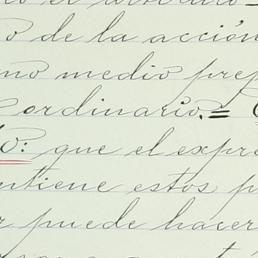 o de la acción
mo medio prep
ordinario.=
o: que el expre
ntiene estos p
r puede hacer